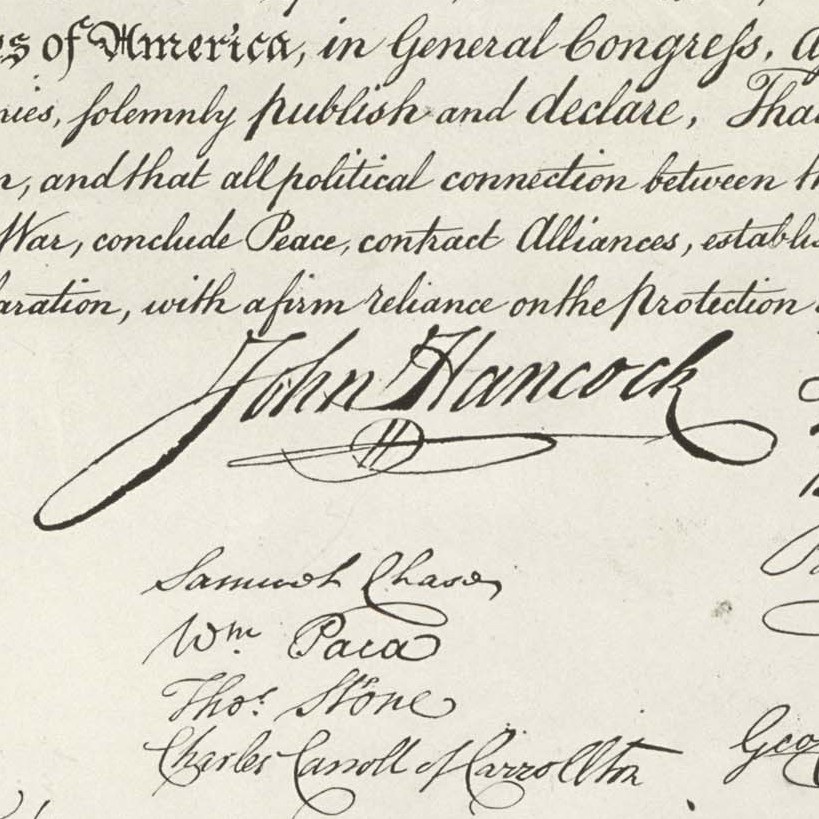 es of America, in General Congreſs, A
nies, ſolemnly publish and declare, That
n, and that all political connection between th
War, conclude Peace, contract Alliances, establis
laration, with a firm reliance on the Protection
John Hancock
Samuel Chase
Wm. Paca
Thos. Stone
Charles Carroll of Carrollton
Geo